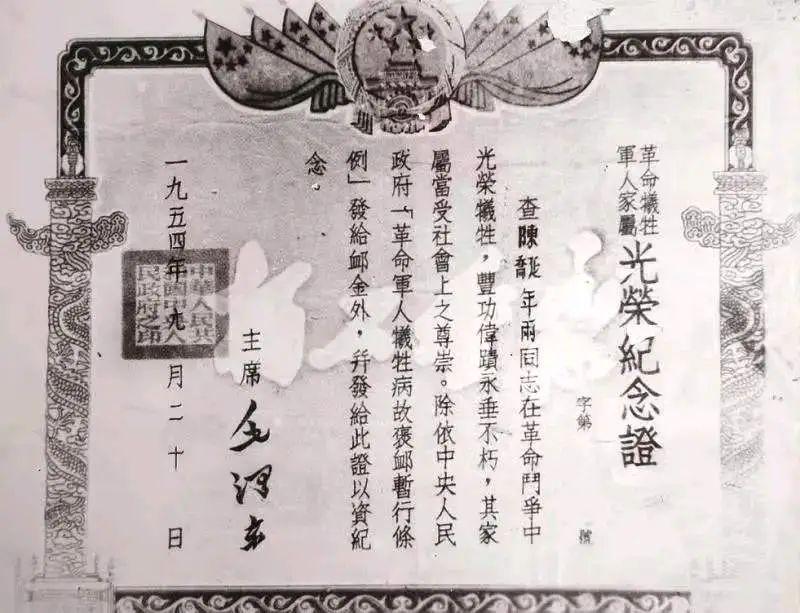 革命犧牲
軍人家屬
光榮紀念證
字第 號
查陳延喬年兩同志在革命鬥爭中
光榮犧牲，豐功偉蹟永垂不朽，其家
屬當受社會上之尊崇。除依中央人民
政府「革命軍人犧牲病故褒卹暫行條
例」發給卹金外，幷發給此證以資紀
念
主席 毛澤東
中華人民共
和國中央人
民政府之印
一九五四年九月二十日